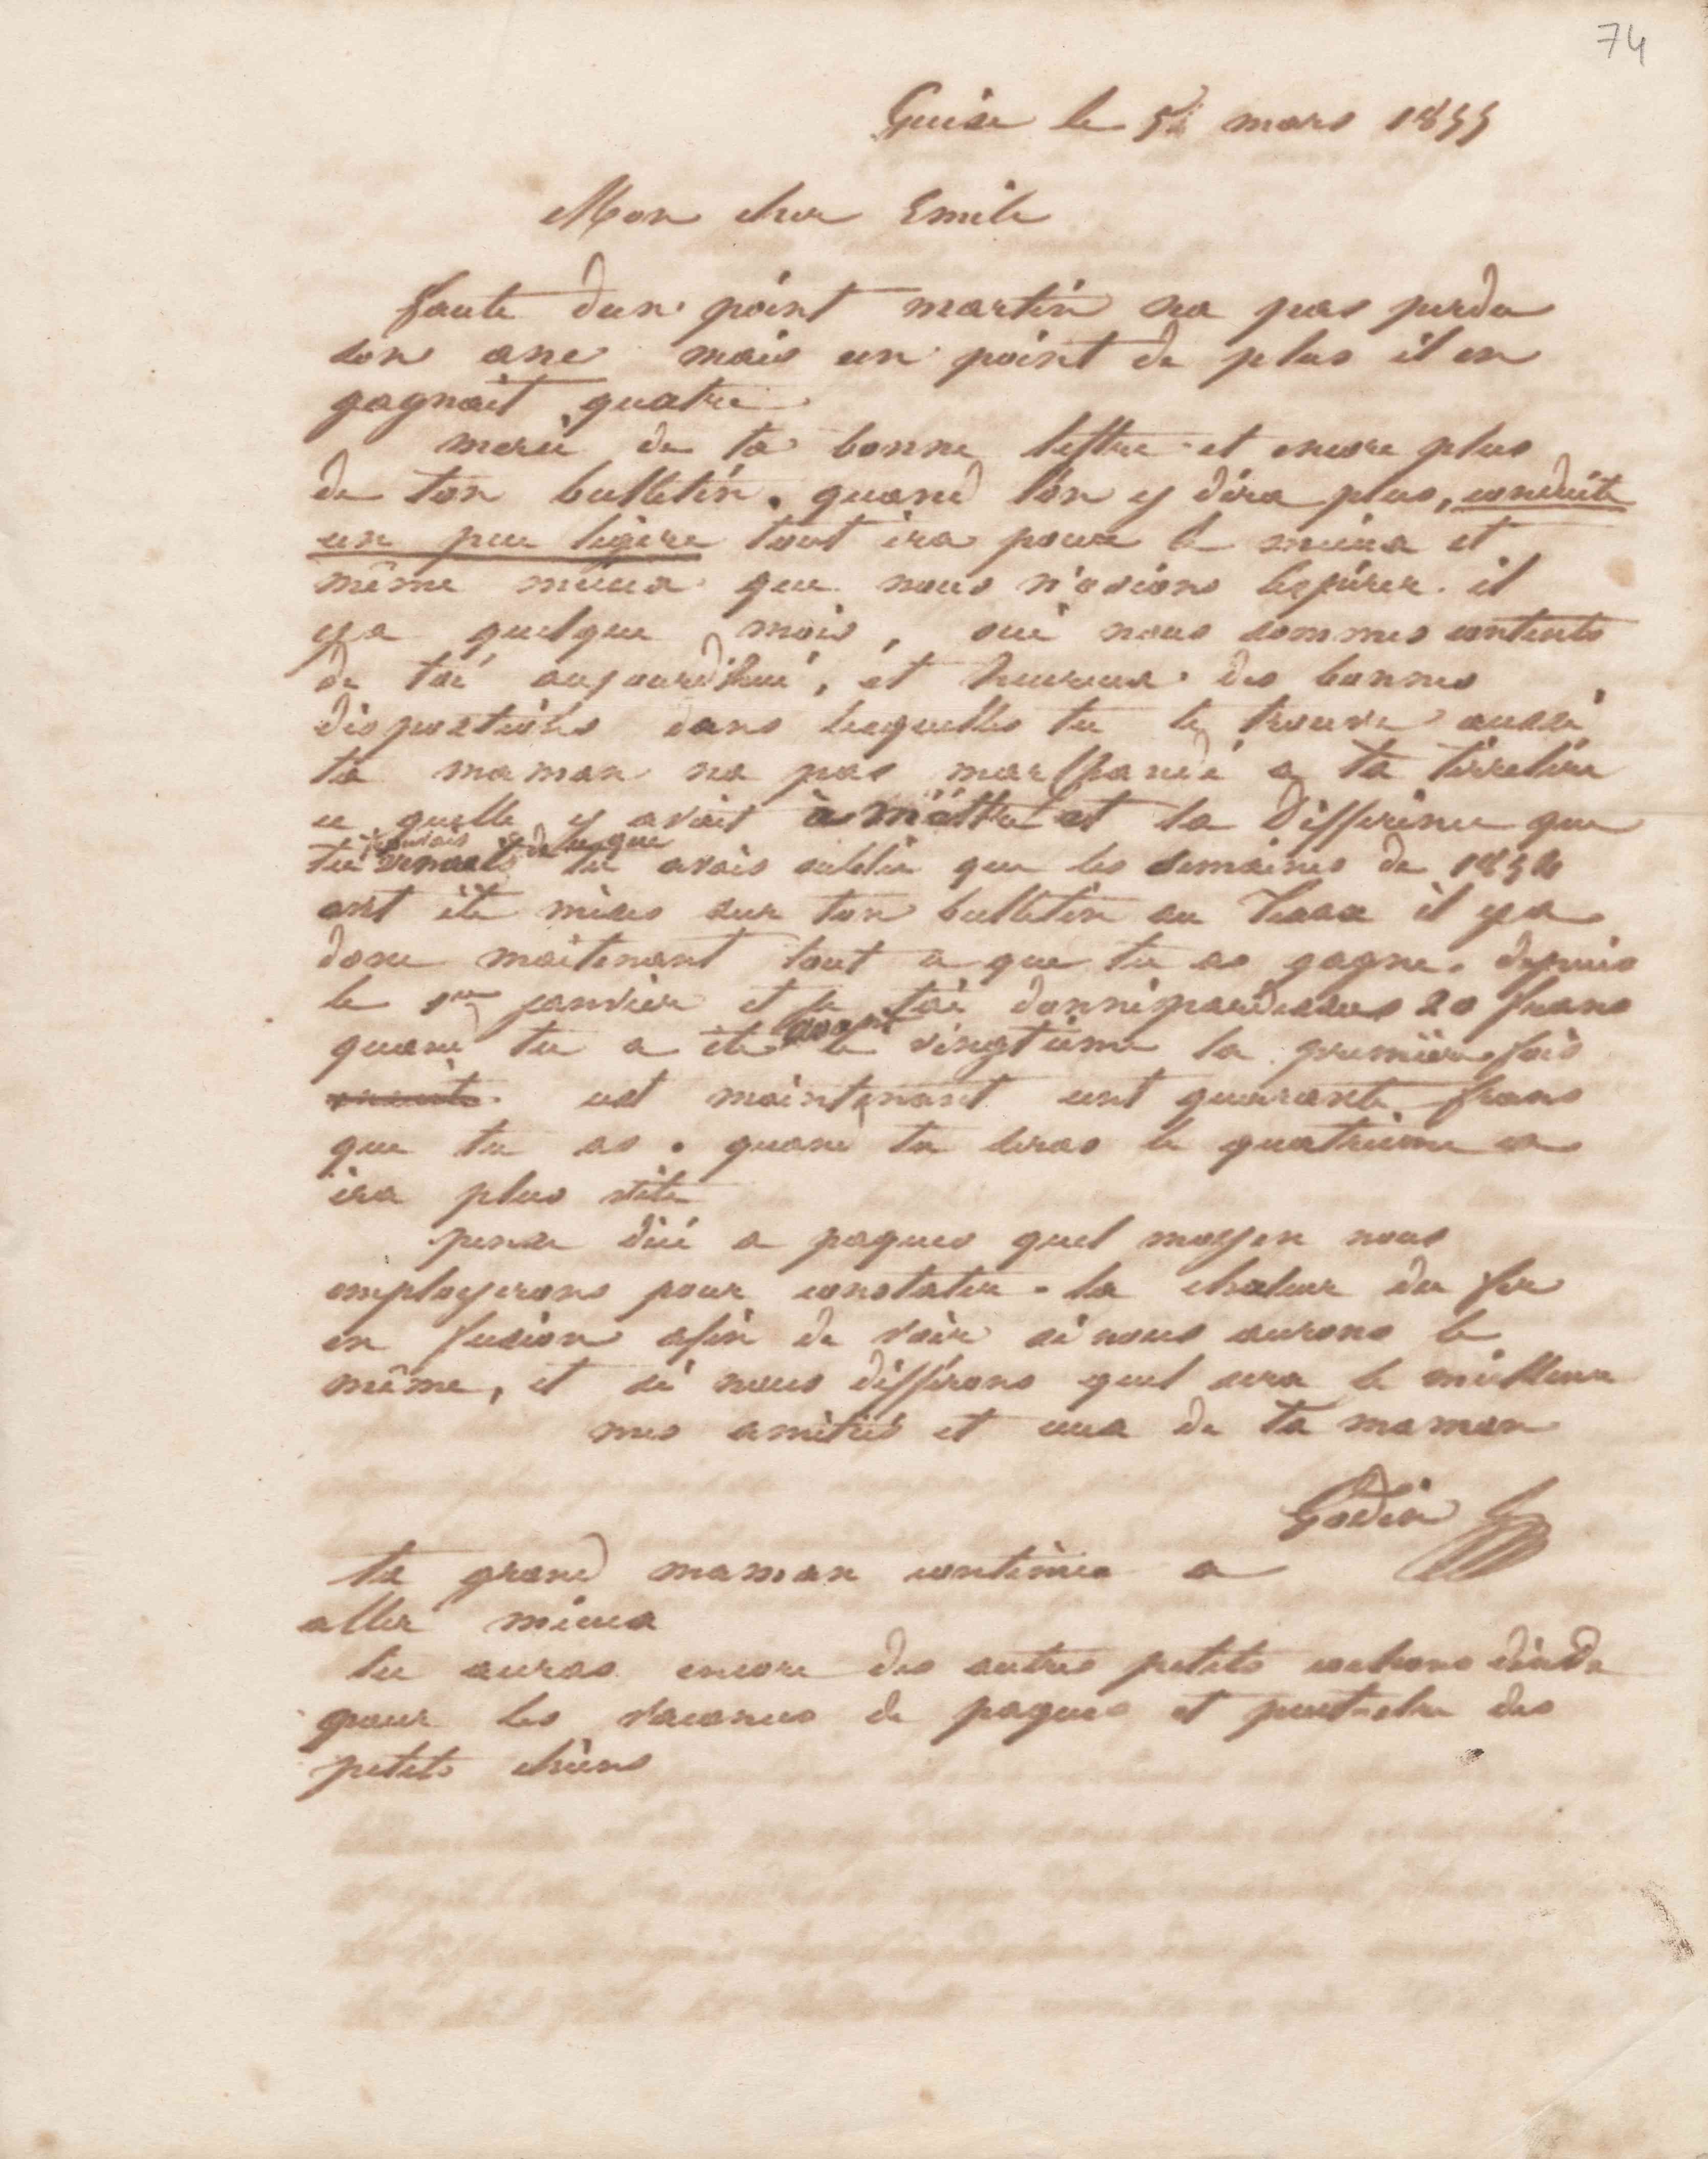 74
Guise le 5 mars 1855
Mon cher Emile
faute dun point martin na pas perdu
son ane mais un point de plus il en
gagnait quatre
merci de ta bonne lettre et encore plus
de ton bulletin. quand lon y dira plus, conduite
un peu légère tout ira pour le mieux et
même mieux que nous n'osions lespérer il
ya quelque mois, oui nous sommes contents
de toi aujourd'hui, et heureux des bonnes
dispostions dans lesquelles tu te trouve aussi
ta maman na pas marchandé a ta tirelire
ce quelle y avait à mettre et la différence que
tu de ce que tu avais oublié que les semaines de 1854
ont été mises sur ton bulletin au Texas il ya
donc maitenant tout ce que tu as gagné depuis
le 1er janvier et je tai donné pardessus 20 francs
quand tu a été le vingtième la première fois
cest maintenant cent quarante francs
que tu as. quand tu seras le quatrième ca
ira plus vite
pense dici a paques quel moyen nous
employerons pour constater la chaleur du fer
en fusion afin de voir si nous aurons le
même, et si nous différons quel sera le meilleur
mes amitiés et ceux de ta maman
Godin
ta grand maman continue a
aller mieux
tu auras encore des autres petits cochons dinde
pour les vacances de paques et peut-etre des
petits chiens